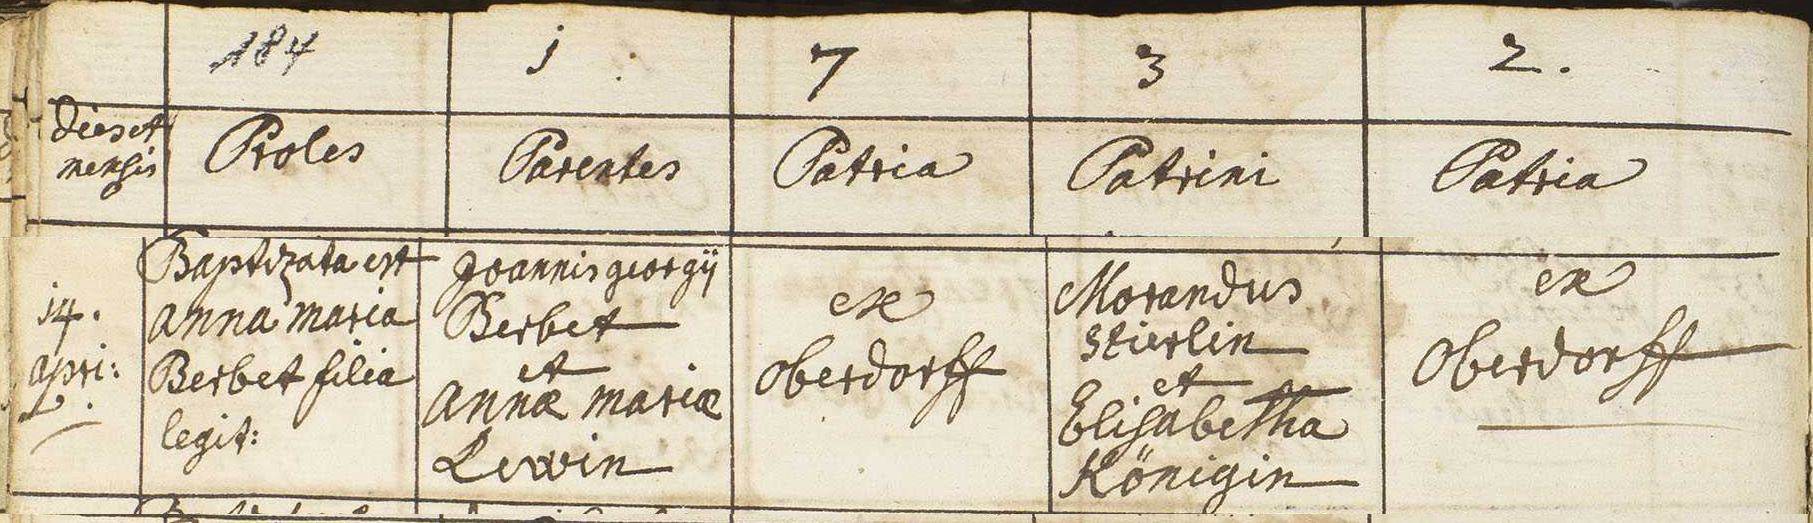 184 j 7 3 2.
Dies et
mensis
Proles
Parentes
Patria
Patrini
Patria
j4.
apri:
Baptizata est
anna maria
Berbet filia
legit:
Joannis georgÿ
Berbet
et
annæ mariæ
Lewin
ex
oberdorff
Morandus
stierlin
et
Elisabetha
Königin
ex
oberdorff